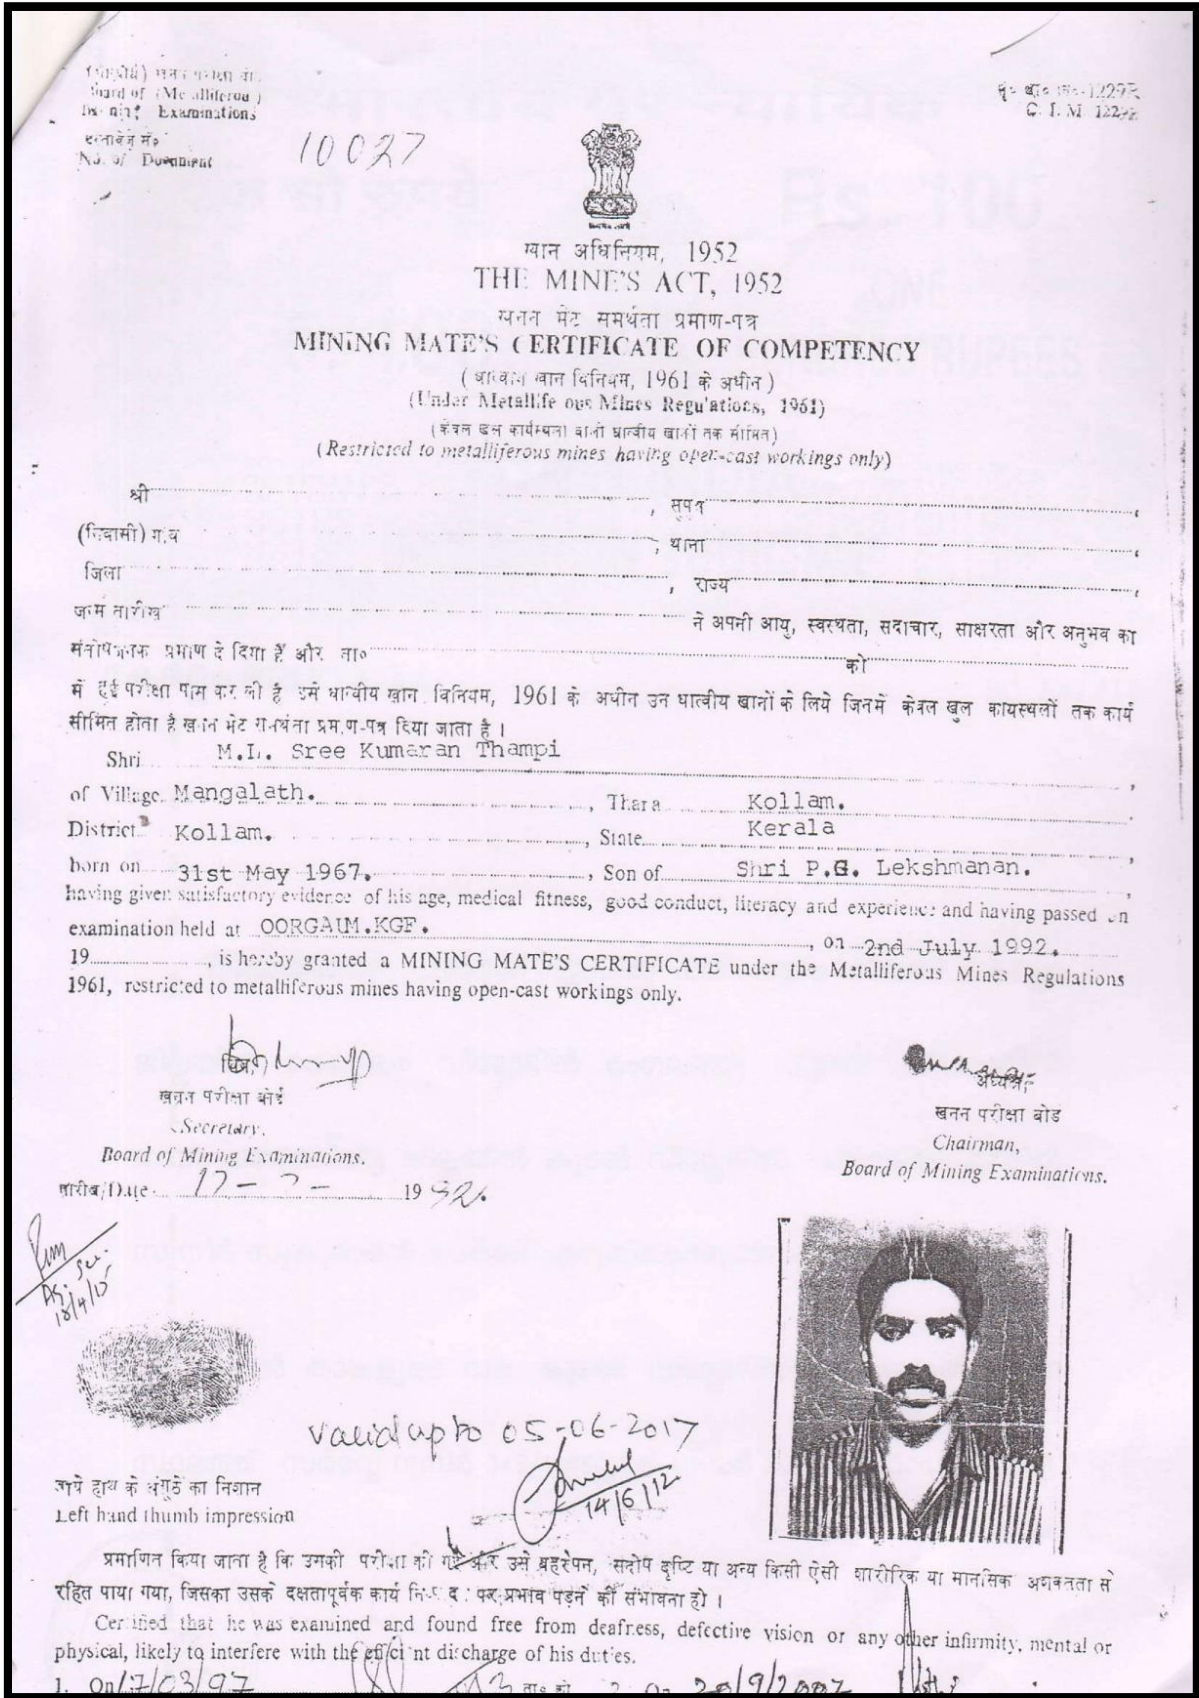 खनन परीक्षा
Board of (Metalliferous)
Mining Examinations
दस्तावेज सं०
No. of Document 10027
1229R
C. I. M. 1229R
खान अधिनियम, 1952
THE MINE'S ACT, 1952
खनन मेट समर्थता प्रमाण-पत्र
MINING MATE'S CERTIFICATE OF COMPETENCY
(धात्वीय खान विनियम, 1961 के अधीन)
(Under Metalliferous Mines Regulations, 1961)
(केवल खुल कार्यस्थलों वाली धात्वीय खानों तक सीमित)
(Restricted to metalliferous mines having open-cast workings only)
श्री , सुपुत्र ,
(निवासी) गांव , थाना ,
जिला , राज्य ,
जन्म तारीख ने अपनी आयु, स्वस्थता, सदाचार, साक्षरता और अनुभव का
संतोषजनक प्रमाण दे दिया हैं और ता० को
में हुई परीक्षा पास कर ली है उसे धात्वीय खान विनियम, 1961 के अधीन उन धात्वीय खानों के लिये जिनमें केवल खुल कायस्थलों तक कार्य
सीमित होता है खनन मेट प्रमाण-पत्र दिया जाता है ।
Shri M.L. Sree Kumaran Thampi ,
of Village Mangalath. , Thara Kollam.
District Kollam. , State Kerala ,
born on 31st May 1967. , Son of Shri P.G. Lekshmanan. ,
having given satisfactory evidence of his age, medical fitness, good conduct, literacy and experience and having passed an
examination held at OORGAUM.KGF. , on 2nd July 1992.
19 , is hereby granted a MINING MATE'S CERTIFICATE under the Metalliferous Mines Regulations
1961, restricted to metalliferous mines having open-cast workings only.
सचिव अध्यक्ष,
खनन परीक्षा बोर्ड खनन परीक्षा बोर्ड
Secretary, Chairman,
Board of Mining Examinations. Board of Mining Examinations.
तारीख/Date 17- 1992.
18/4/15
valid upto 05-06-2017
14/6/12
बायें हाथ के अंगूठे का निशान
Left hand thumb impression
प्रमाणित किया जाता है कि उसकी परीक्षा की गई और उसे बहरेपन, सदोष दृष्टि या अन्य किसी ऐसी शारीरिक या मानसिक अशक्तता से
रहित पाया गया, जिसका उसके दक्षतापूर्वक कार्य पर प्रभाव पड़ने की संभावना हो ।
Certified that he was examined and found free from deafness, defective vision or any other infirmity, mental or
physical, likely to interfere with the efficient discharge of his duties.
1. On 17/03/97 ता० को 2. On 20/9/2002